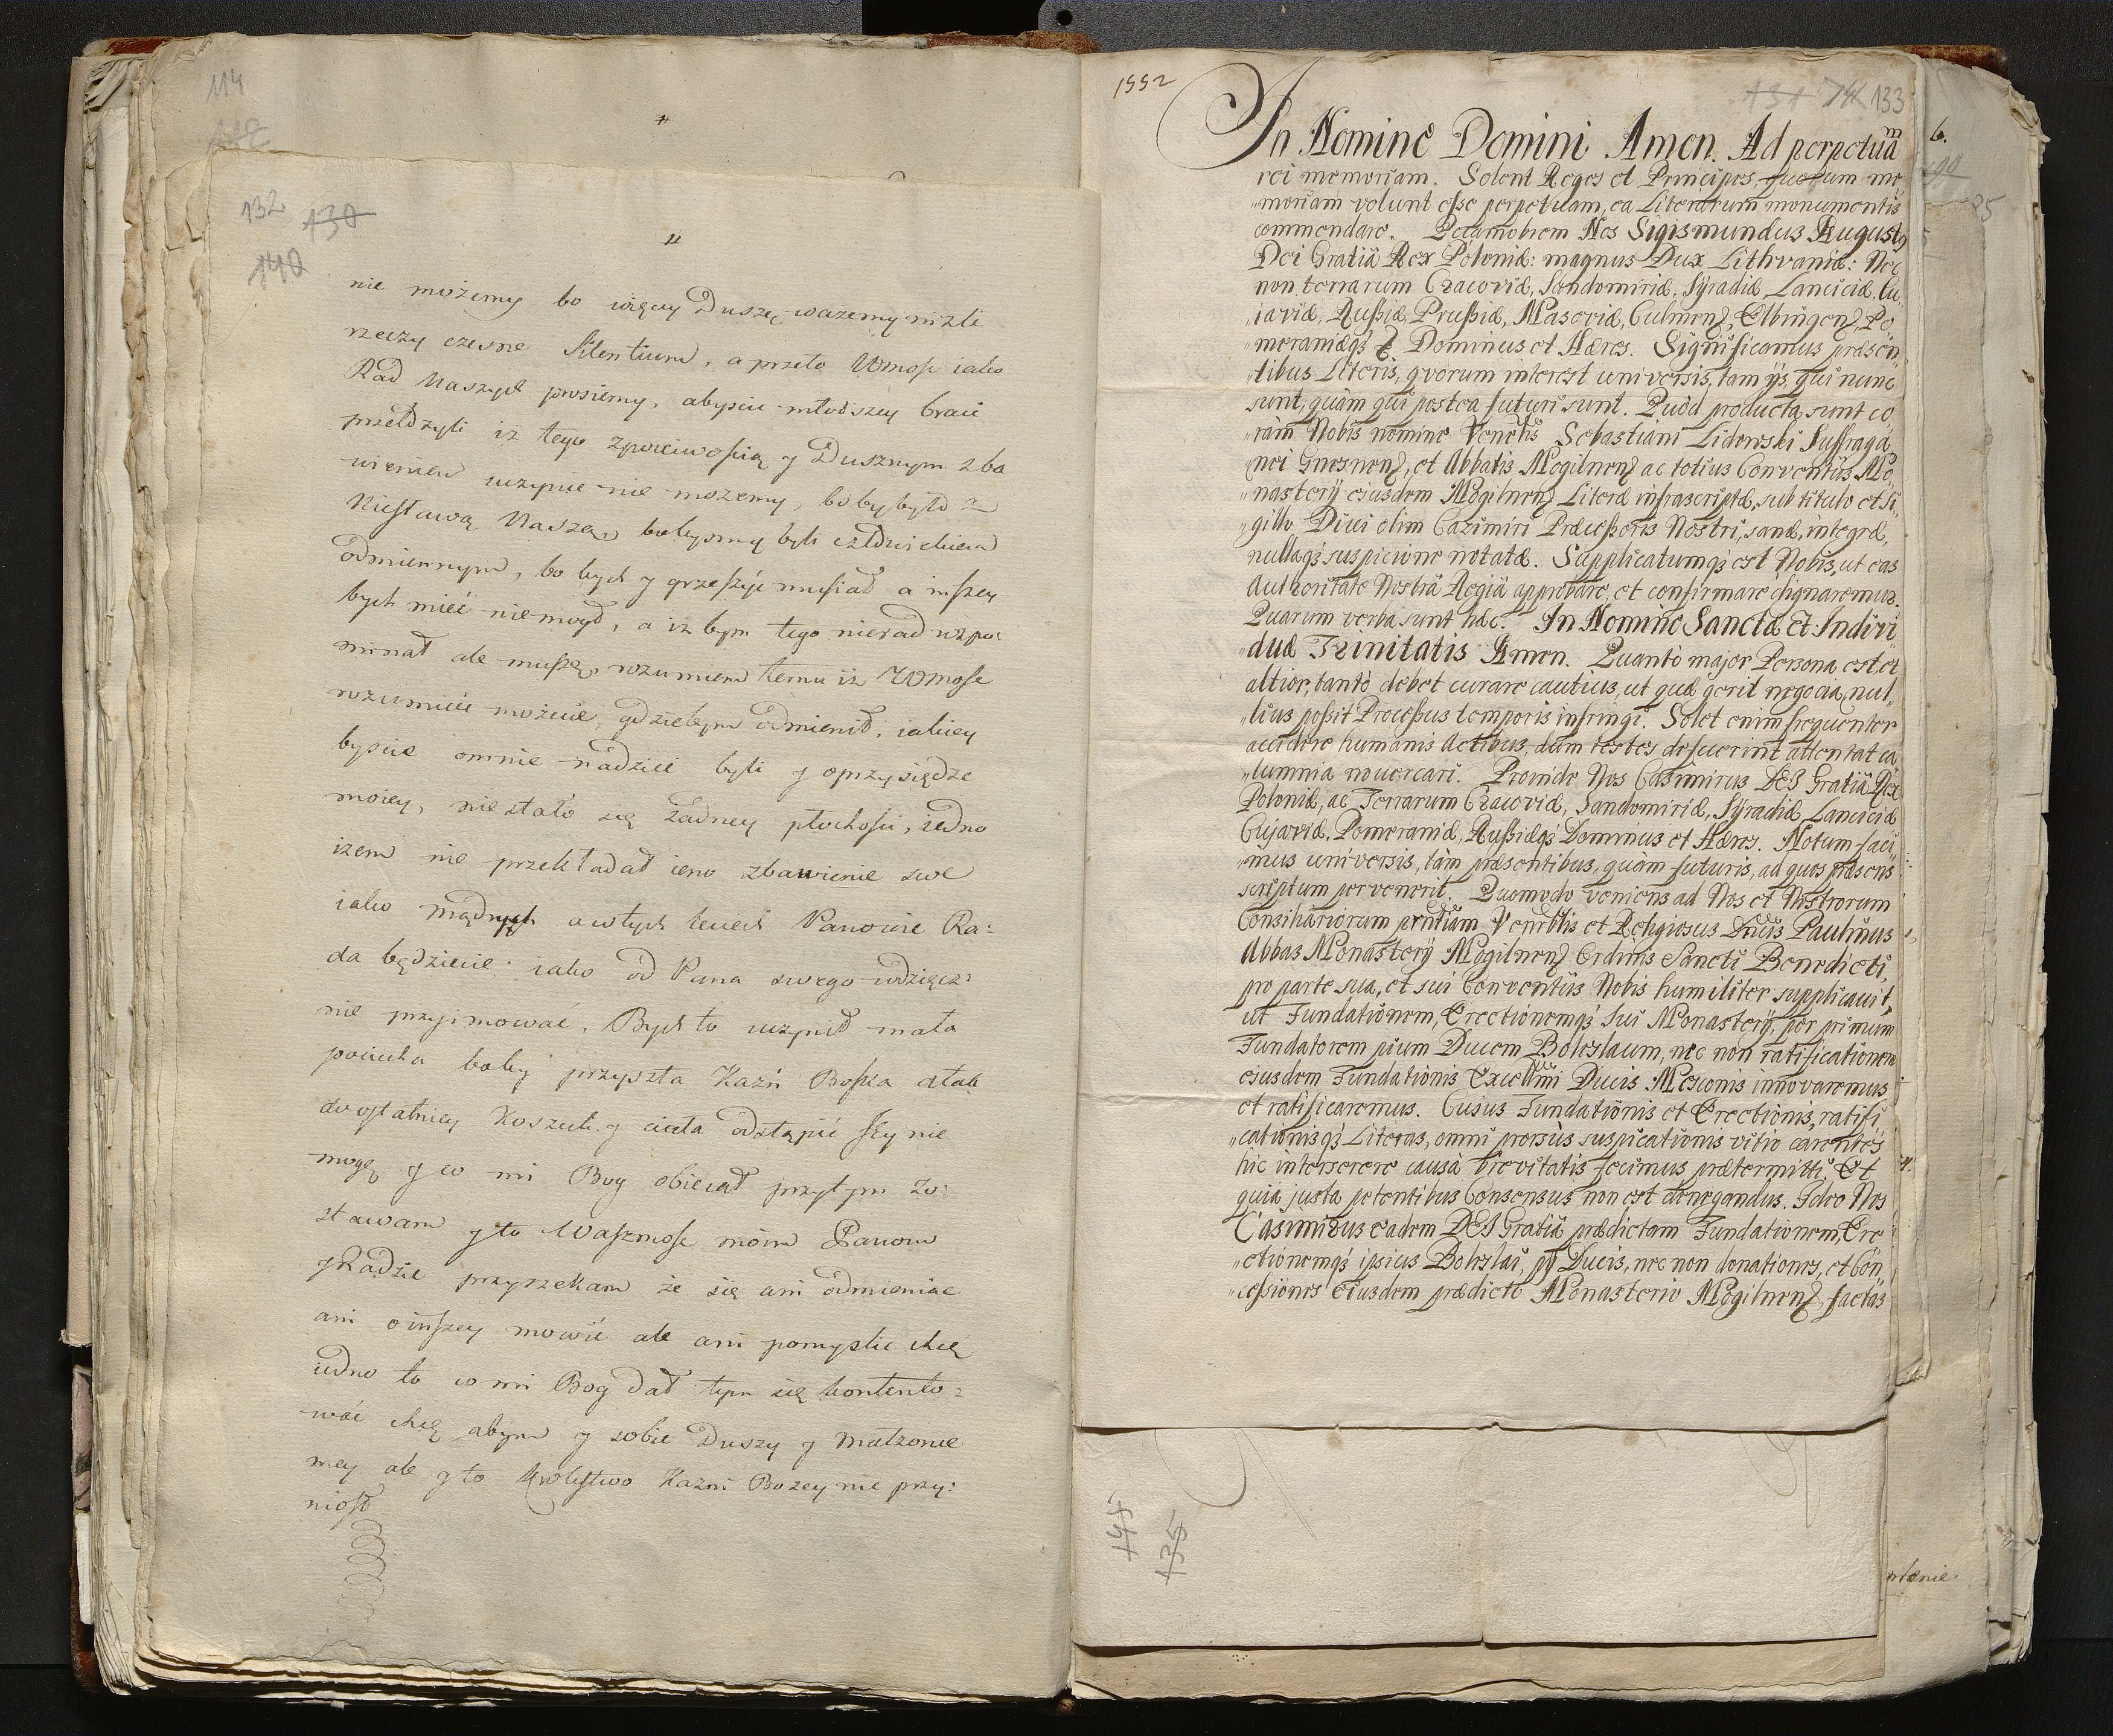 114
132 130
140
nie możemy bo więcey Duszę ważemy niżli
rzeczy czesne Silentium, a przeto Wmość iako
Rad Naszych prosiemy, abyście młodszey braci
przełożyli iż tego z poćciwością y Dusznym zba
wieniem uczynić nie możemy, bo by było z
Niesławą Naszą, bobysmy byli człowiekiem
odmiennym, bo bych y grzeszyć musiał a inszey
bych mieć niemogł, a iż bym tego nierad wzpo
minał ale muszę, rozumiem temu iż Wmość
rozumieć możecie, gdziebym odmienił, iakiey
byście o mnie nadzieie byli y o przysiędze
moiey, nie stało się żadney płochości, iedno
iżem nie przekładał ieno zbawienie swe
iako mądrych a w tych leciech Panowie Ra:
da będziecie iako od Pana swego wdzięcz:
nie przyimować. Bych to uczynił mała
pociecha boby przyszła Kaźń Boska a tak
do ostatniey Koszuli y ciała odstąpić Jey nie
mogę y co mi Bog obiecał przy tym zo:
stawam y to Waszmość moim Panom
y Radzie przyrzekam że się ani odmieniać
ani o inszey mowić ale ani pomyslić chcę
iedno to co mi Bog dał tym się kontento=
wać chcę abym y sobie Duszy y Małżonce
mey ale y to Krolestwo Kaźni Bozey nie przy:
niosł
1552
131 74 133
In Nomine Domini Amen. Ad perpetuam
rei memoriam. Solent Reges et Principes, quorum me
„moriam volunt esse perpetuam, ea Literarum monumentis
commendare. Quamobrem Nos Sigismundus Augustus
Dei Gratiâ Rex Poloniæ: magnus Dux Lithvaniæ: Nec
non terrarum Cracoviæ, Sandomiriæ, Syradiæ Lanciciæ, Cu
„iaviæ, Russiæ, Prussiæ, Masoviæ, Culmen, Elbingen, Po
„meraniæq3 & Dominus et Hæres. Significamus præsen
„tibus Literis, qvorum interest universis, tam ijs, qui nunc
sunt, quàm qui postea futuri sunt. Quòd producta sunt co
„ram Nobis nomine Venelis Sebastiani Lidewski Suffraga
„nei Gnesnen, et Abbatis Mogilnen ac totius Conventûs Mo
„nasterij eiusdem Mogilnen Literæ infrascriptæ, sub titulo et si
„gillo Divi olim Cazimiri Prædecessoris Nostri, sanæ, integræ,
nullaq3 suspicione notatæ. Supplicatumq3 est Nobis, ut eas
Authoritate Nostrâ Regiâ approbare, et confirmare dignaremur.
Quarum verba sunt hæc. In Nomine Sanctæ Et Indivi
„duæ Trinitatis Amen. Quantò major Persona est et
altior, tantò debet curare cautius, ut quæ gerit negotia, nul
„lius possit Processus temporis infringi. Solet enim frequenter
accidere humanis Actibus, dum testes defuerint attentat ca
„lumnia novercari. Proinde Nos Casimirus DEI Gratiâ Rex
Poloniæ, ac Terrarum Cracoviæ, Sandomiriæ, Syradiæ Lanciciæ
Cujaviæ, Pomeraniæ, Russiæq3 Dominus et Hæres. Notum faci
„mus universis, tàm præsentibus, quàm futuris, ad quos præsens
scriptum pervenerit. Quomodo veniens ad Nos et Nostrorum
Consiliariorum pntiam Venrblis et Religiosus Dnus Paulinus
Abbas Monasterij Mogilnen Ordinis Sancti Benedicti,
pro parte sua, et sui Conventûs Nobis humiliter supplicavit,
ut Fundationem, Erectionemq3 Sui Monasterij, per primum
Fundatorem pium Ducem Boleslaum, nec non ratificationem
ejusdem Fundationis Excellmi Ducis Mesconis innovaremus
et ratificaremus. Cujus Fundationis et Erectionis, ratifi
„cationisq3 Literas, omni prorsùs suspicationis vitio carentes
hic interserere causâ brevitatis fecimus prætermitti. Et
quia justa petentibus Consensus non est denegandus. Ideo Nos
Casimirus eadem DEI Gratiâ prædictam Fundationem, Ere
„ctionemq3 ipsius Boleslai, pij Ducis, nec non donationes, et Con
„cessiones Ejusdem prædicto Monasterio Mogilnen factas
145
135
6.
25